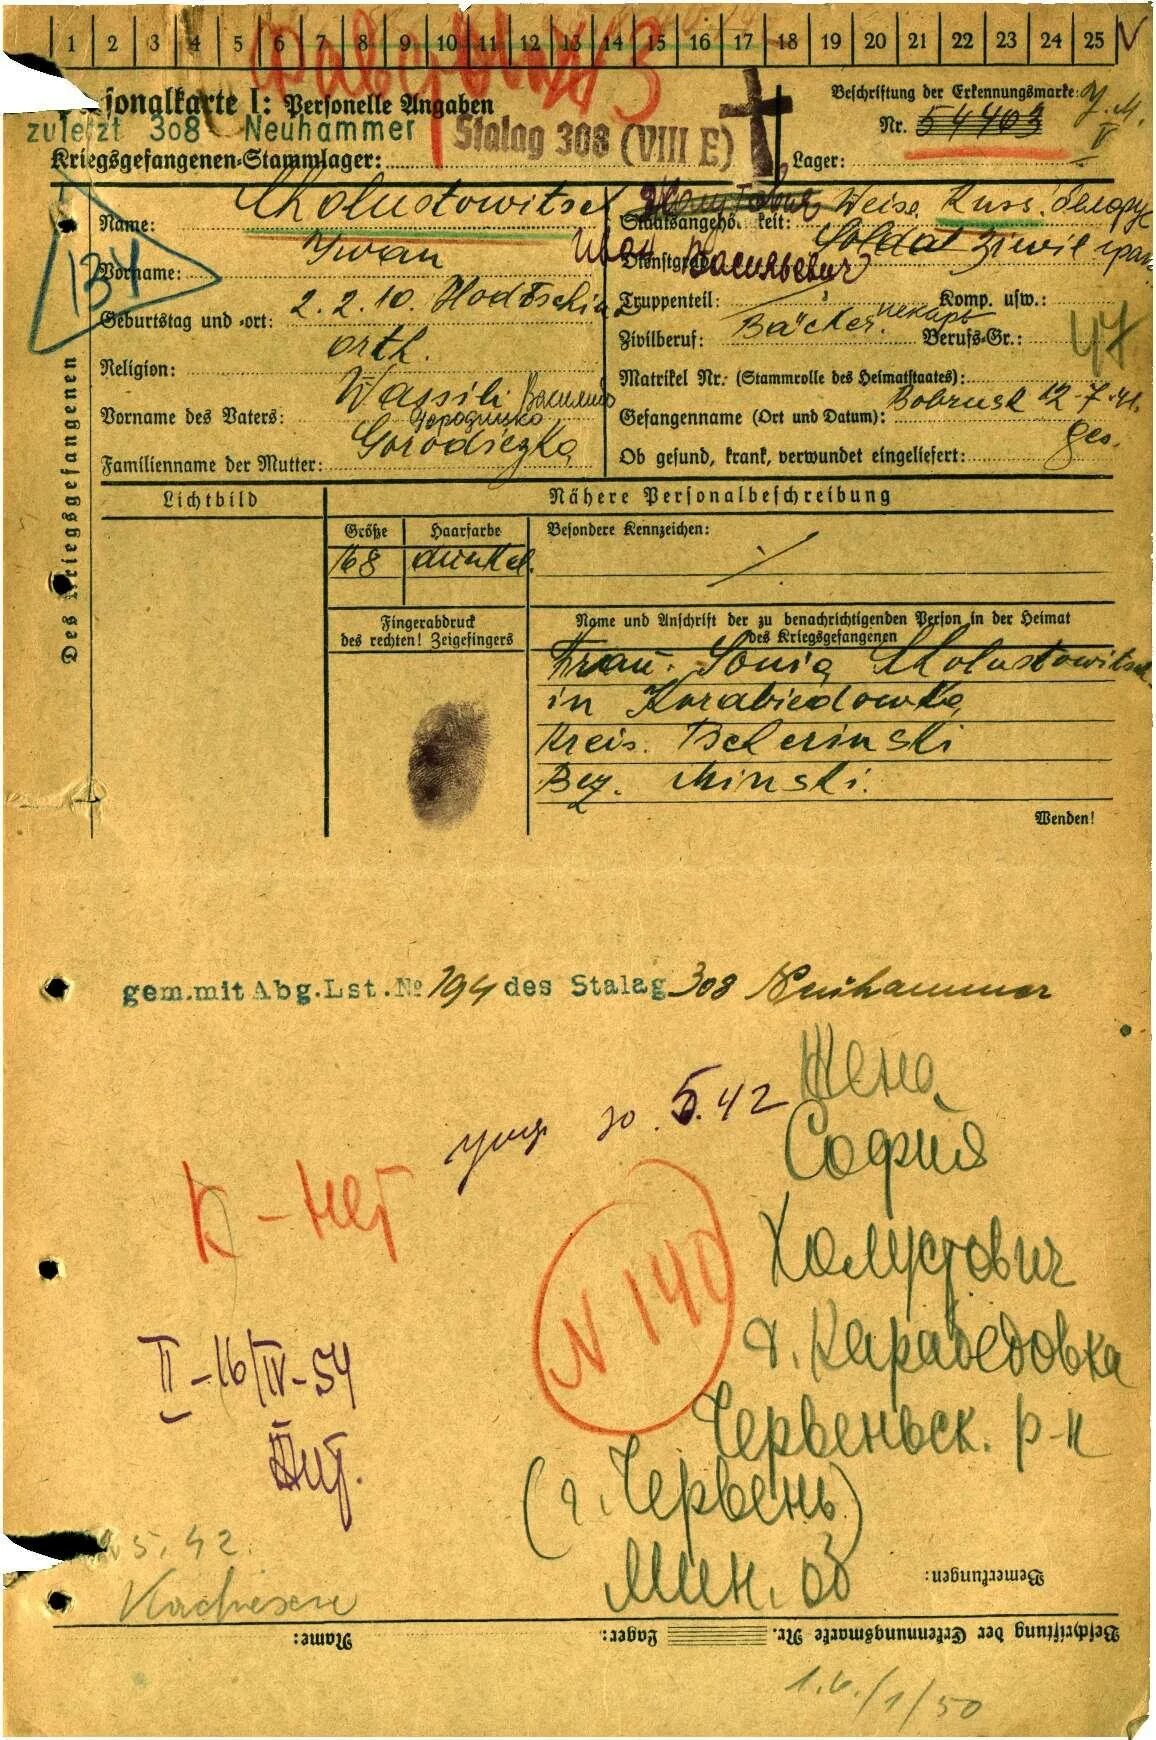 1 2 3 4 5 6 7 8 9 10 11 12 13 14 15 16 17 18 19 20 21 22 23 24 25 V
sonalkarte I: Personelle Angaben
Beschriftung der Erkennungsmarke:
zuletzt 308 Neuhammer
Stalag 308 (VIII E)
Nr. 54403
Kriegsgefangenen-Stammlager:
Lager:
Name: Cholustowitsch
Staatsangehörigkeit: Weise Russ. белорус
Vorname: Iwan
Иван Васильевич
Dienstgrad: Soldat Ziwil
134
Geburtstag und -ort: 2.2.10.
Truppenteil:
Komp. usw.:
Religion: orth.
Zivilberuf: Bäcker. пекарь
Berufs-Gr.:
47
Matrikel Nr. (Stammrolle des Heimatstaates):
Vorname des Vaters: Wassili Василий
Gefangenname (Ort und Datum): Bobrusk 12.7.41.
Familienname der Mutter: Gorodiezka
Ob gesund, krank, verwundet eingeliefert: ges.
Des Kriegsgefangenen
Lichtbild
Nähere Personalbeschreibung
Größe
Haarfarbe
Besondere Kennzeichen:
168
dunkel.
Fingerabdruck
des rechten! Zeigefingers
Name und Anschrift der zu benachrichtigenden Person in der Heimat
des Kriegsgefangenen
Frau. Sonia Cholustowitsch
in Karabiedowka
Kreis. Tscherinski
Bez. Minski.
Wenden!
gem.mit Abg.Lst.№ 194 des Stalag 308 Neuhammer
Жена
30.5.42
София
К - нет
Холустович
N 140
д. Карабедовка
II-16/IV-54
Червеньск. р-н
(г. Червень)
5.42.
Мин. об
Bemerkungen:
Beschriftung der Erkennungsmarke Nr.
Lager:
Name:
1.6./1/50